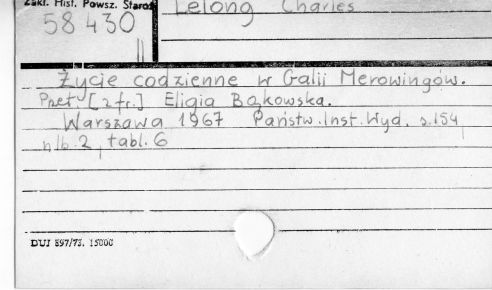 Zakł. Hist. Powsz. Staroż
Lelong Charles
58 430
Życie codzienne w Galii Merowingów.
Przeł [z fr.] Eligia Bąkowska.
Warszawa 1967 Państw. Inst. Wyd. s. 154
nlb. 2, tabl. 6
DUI 897/73. 15000